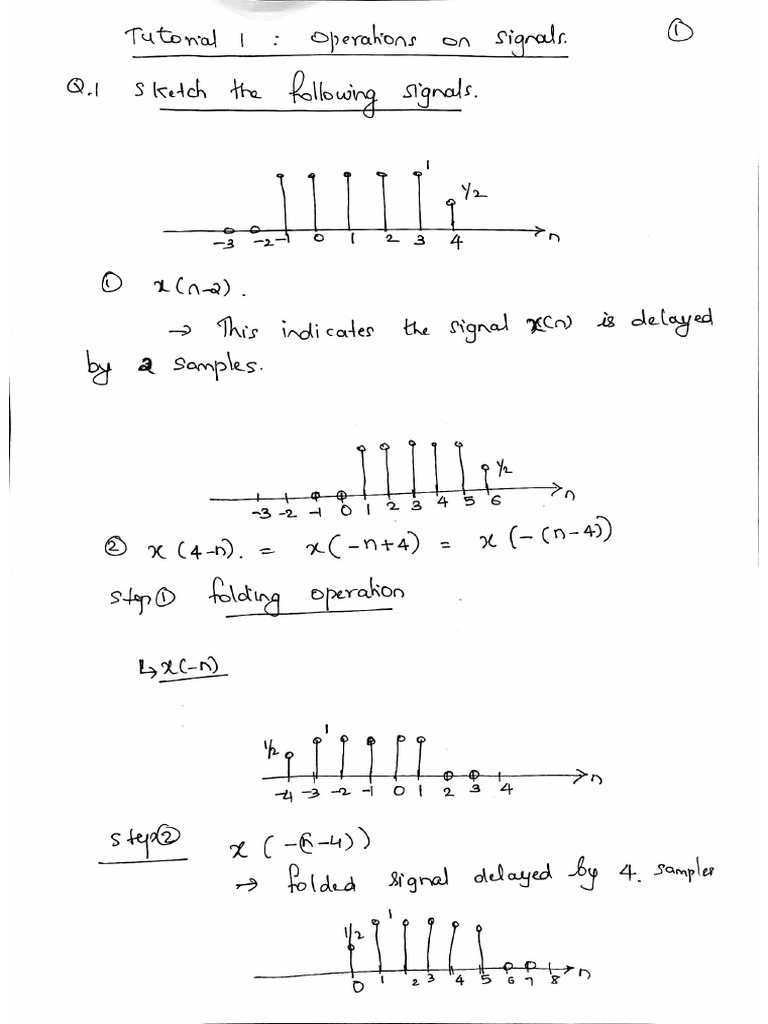 Tutorial 1 : Operations on signals. ①
Q.1 Sketch the following signals.
1
1/2
-3 -2 -1 0 1 2 3 4 n
① x(n-2).
→ This indicates the signal x(n) is delayed
by 2 samples.
1/2
-3 -2 -1 0 1 2 3 4 5 6 n
② x(4-n). = x(-n+4) = x(-(n-4))
Step① folding operation
↳x(-n)
1/2 1
-4 -3 -2 -1 0 1 2 3 4 n
Step② x(-(n-4))
→ folded signal delayed by 4. samples
1/2 1
0 1 2 3 4 5 6 7 8 n